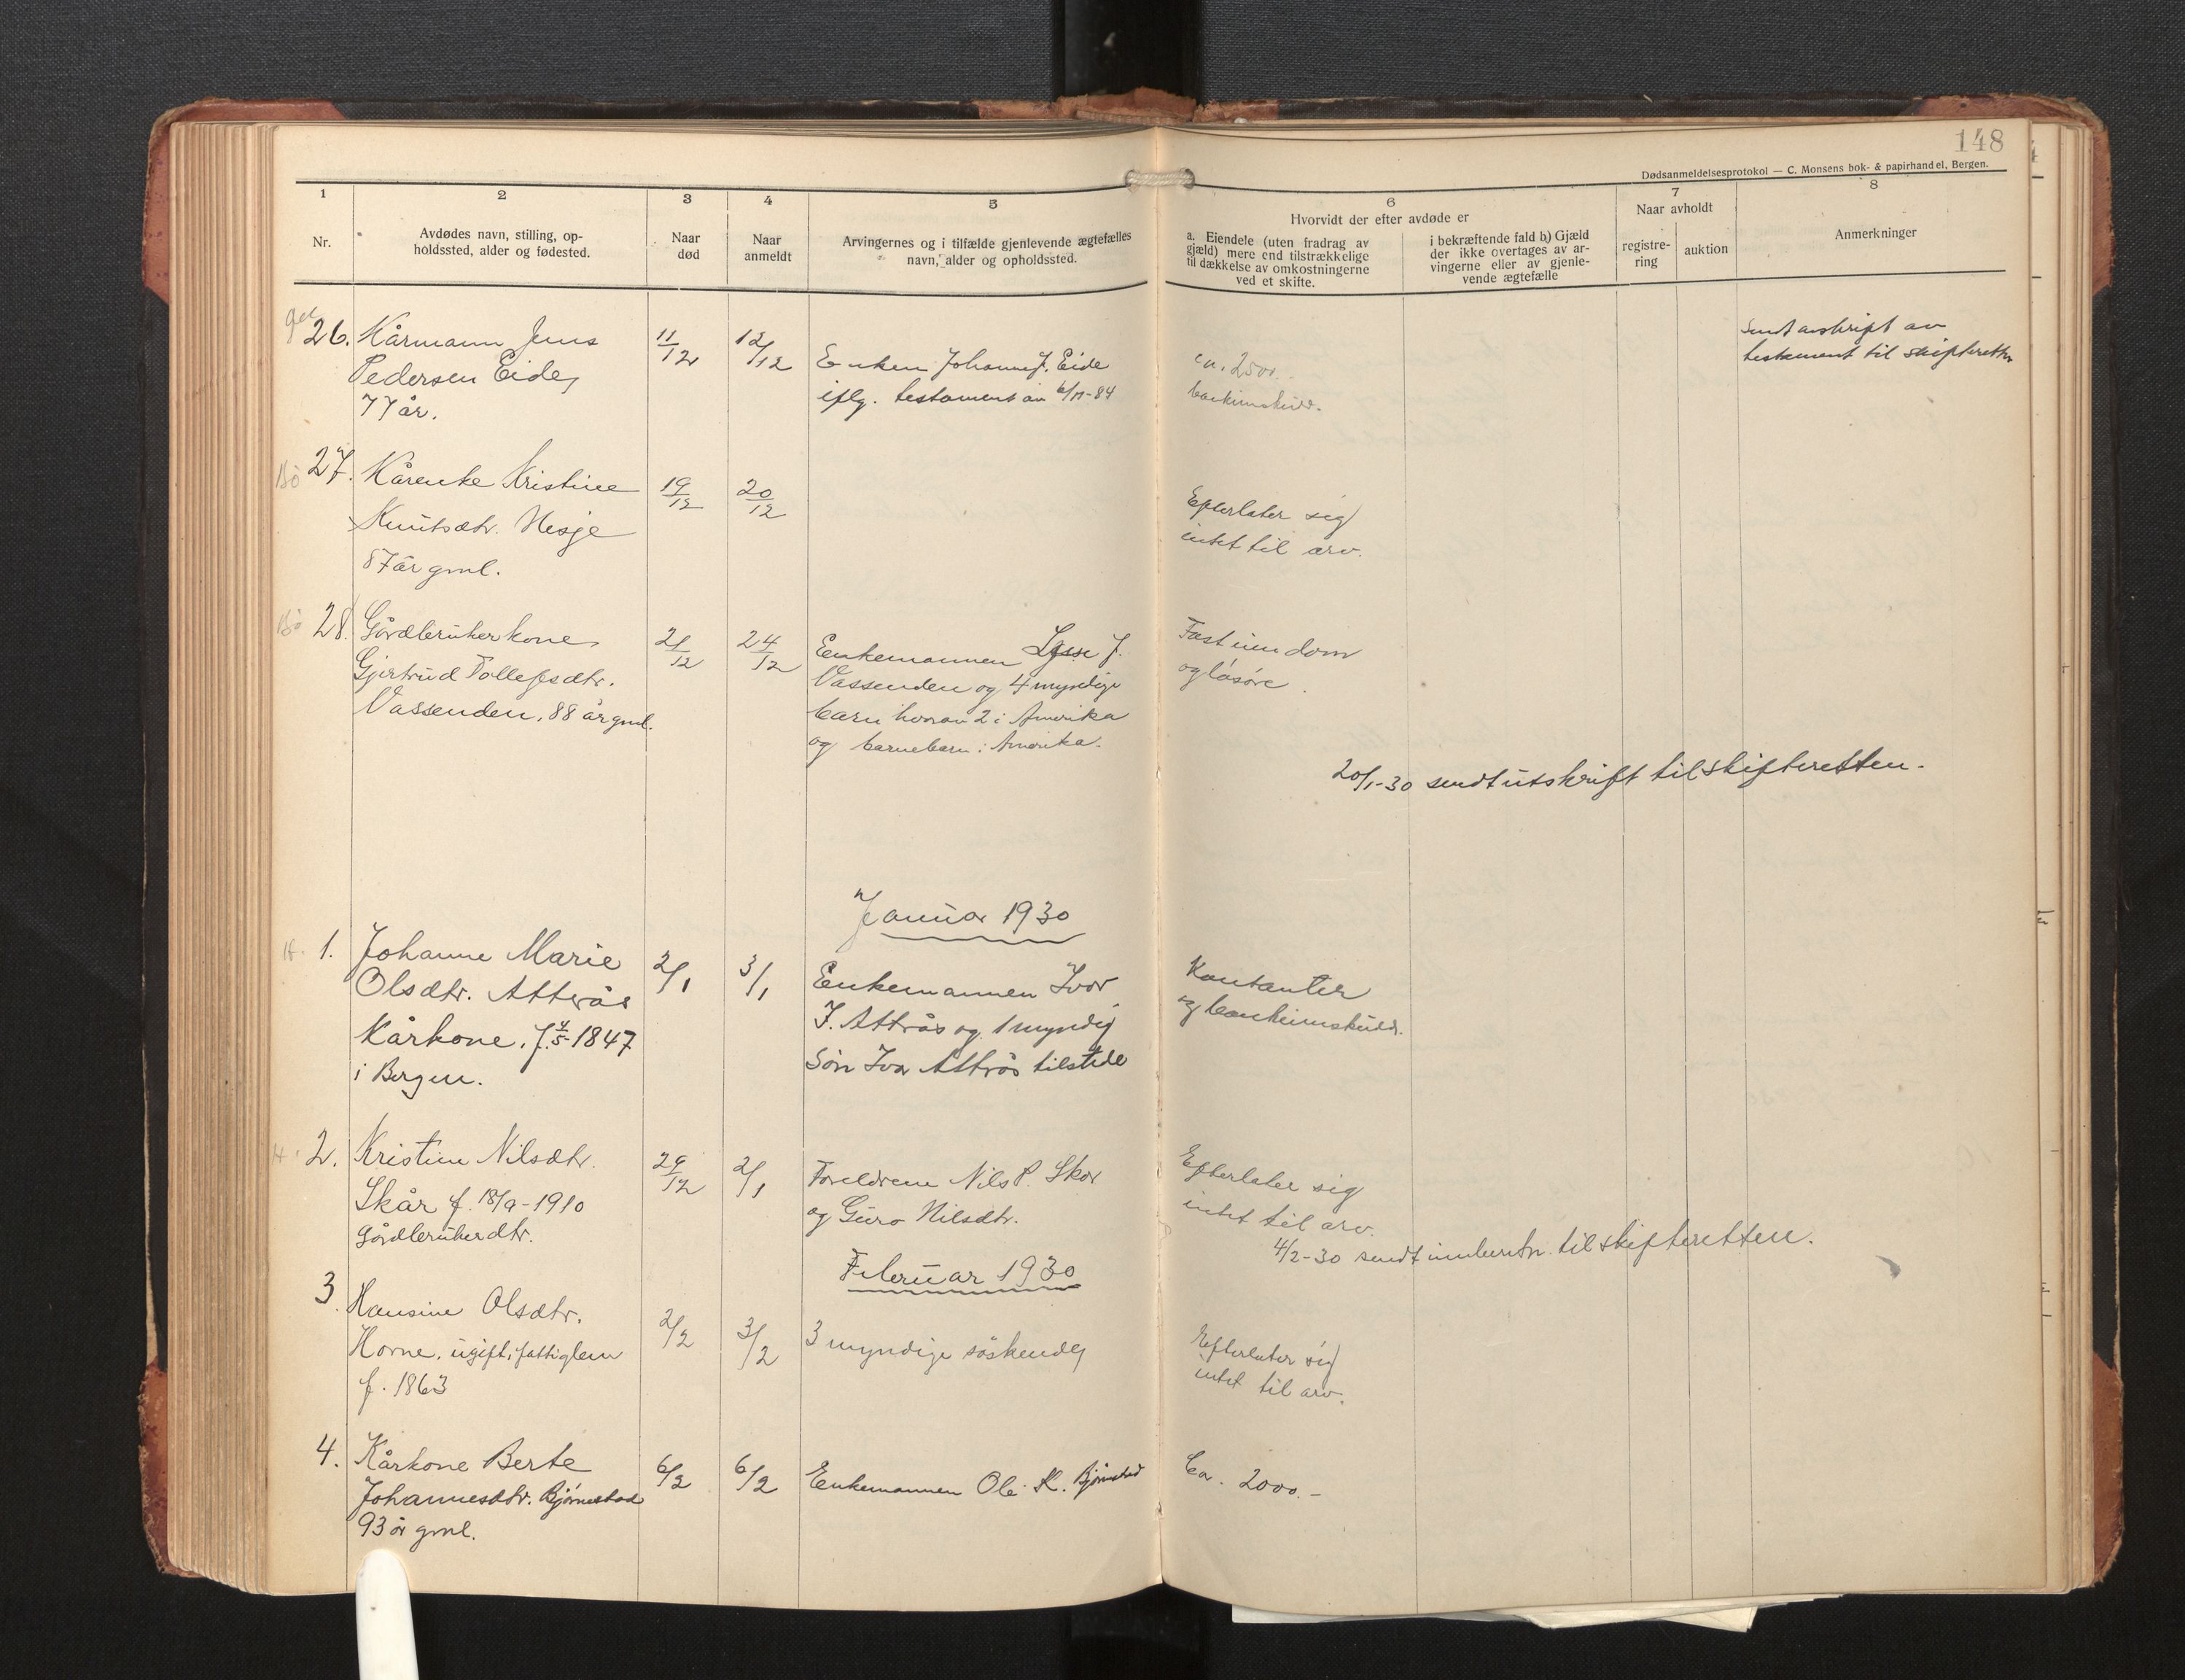 148
Dødsanmeldelsesprotokol — C. Monsens bok- & papirhandel, Bergen.
1
2
3
4
5
6
7
8
Nr.
Avdødes navn, stilling, op-
holdssted, alder og fødested.
Naar
død
Naar
anmeldt
Arvingernes og i tilfælde gjenlevende ægtefælles
navn, alder og opholdssted.
Hvorvidt der efter avdøde er
a. Eiendele (uten fradrag av
gjæld) mere end tilstrækkelige
til dækkelse av omkostningerne
ved et skifte.
i bekræftende fald b) Gjæld
der ikke overtages av ar-
vingerne eller av gjenle-
vende ægtefælle
Naar avholdt
registre-
ring
auktion
Anmerkninger
26. Kårmann Jens
Pedersen Eide,
77 år.
11/12
12/12
Enken Johanne J. Eide
iflg. testament av 6/11-84
ca. 2500.
bankinnskudd.
Sendt avskrift av
testament til skifteretten
Bö 27. Kårenke Kristine
Knutsdtr. Hesje
87 år gml.
19/12
20/12
Efterlater sig
intet til arv.
Bö 28. Gårdbrukerkone
Gjertrud Tollefsdtr.
Vassenden, 88 år gml.
21/12
24/12
Enkemannen Lasse J.
Vassenden og 4 myndige
barn hvorav 2 i Amerika
og barnebarn i Amerika.
Fast eiendom
og løsøre.
20/1-30 sendt utskrift til skifteretten.
Januar 1930
H. 1. Johanne Marie
Olsdtr. Atterås
Kårkone. f. 4/5-1847
i Bergen.
2/1
3/1
Enkemannen Ivar
J. Attrås og 1 myndig
sön Ivar Attrås tilstede
Kontanter
og bankinnskudd.
H. 2. Kristine Nilsdtr.
Skår f. 18/9-1910
gårdbrukerdtr.
29/12
2/1
Foreldrene Nils P. Skår
og Guro Nilsdtr.
Efterlater sig
intet til arv.
4/2-30 sendt innberetn. til skifteretten.
Februar 1930
3. Hansine Olsdtr.
Horne, ugift, fattiglem
f. 1863
2/2
3/2
3 myndige söskende
Efterlater sig
intet til arv.
4. Kårkone Berte
Johannesdtr. Bjørnestad
93 år gml.
6/2
6/2
Enkemannen Ole K. Bjørnestad
Ca. 2000.-